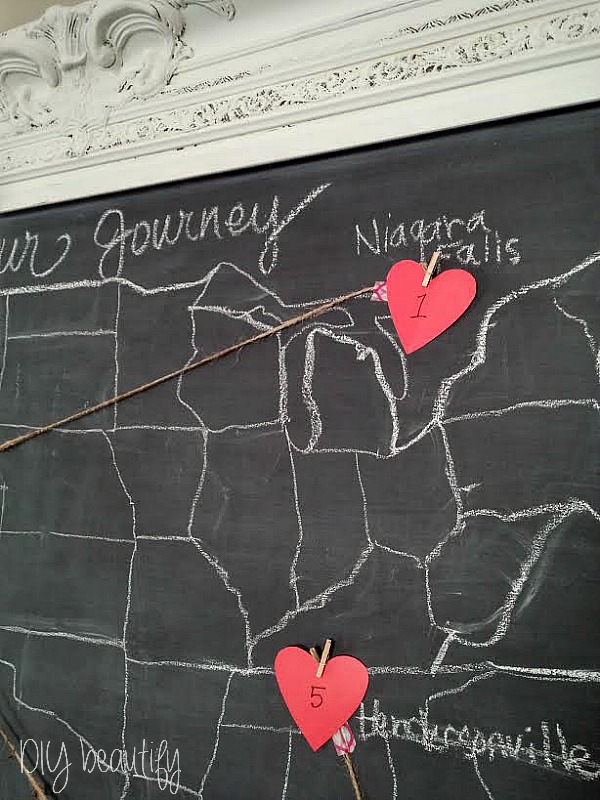 ur Journey
Niagara
Falls
1
5
Hendersonville
DIY beautify